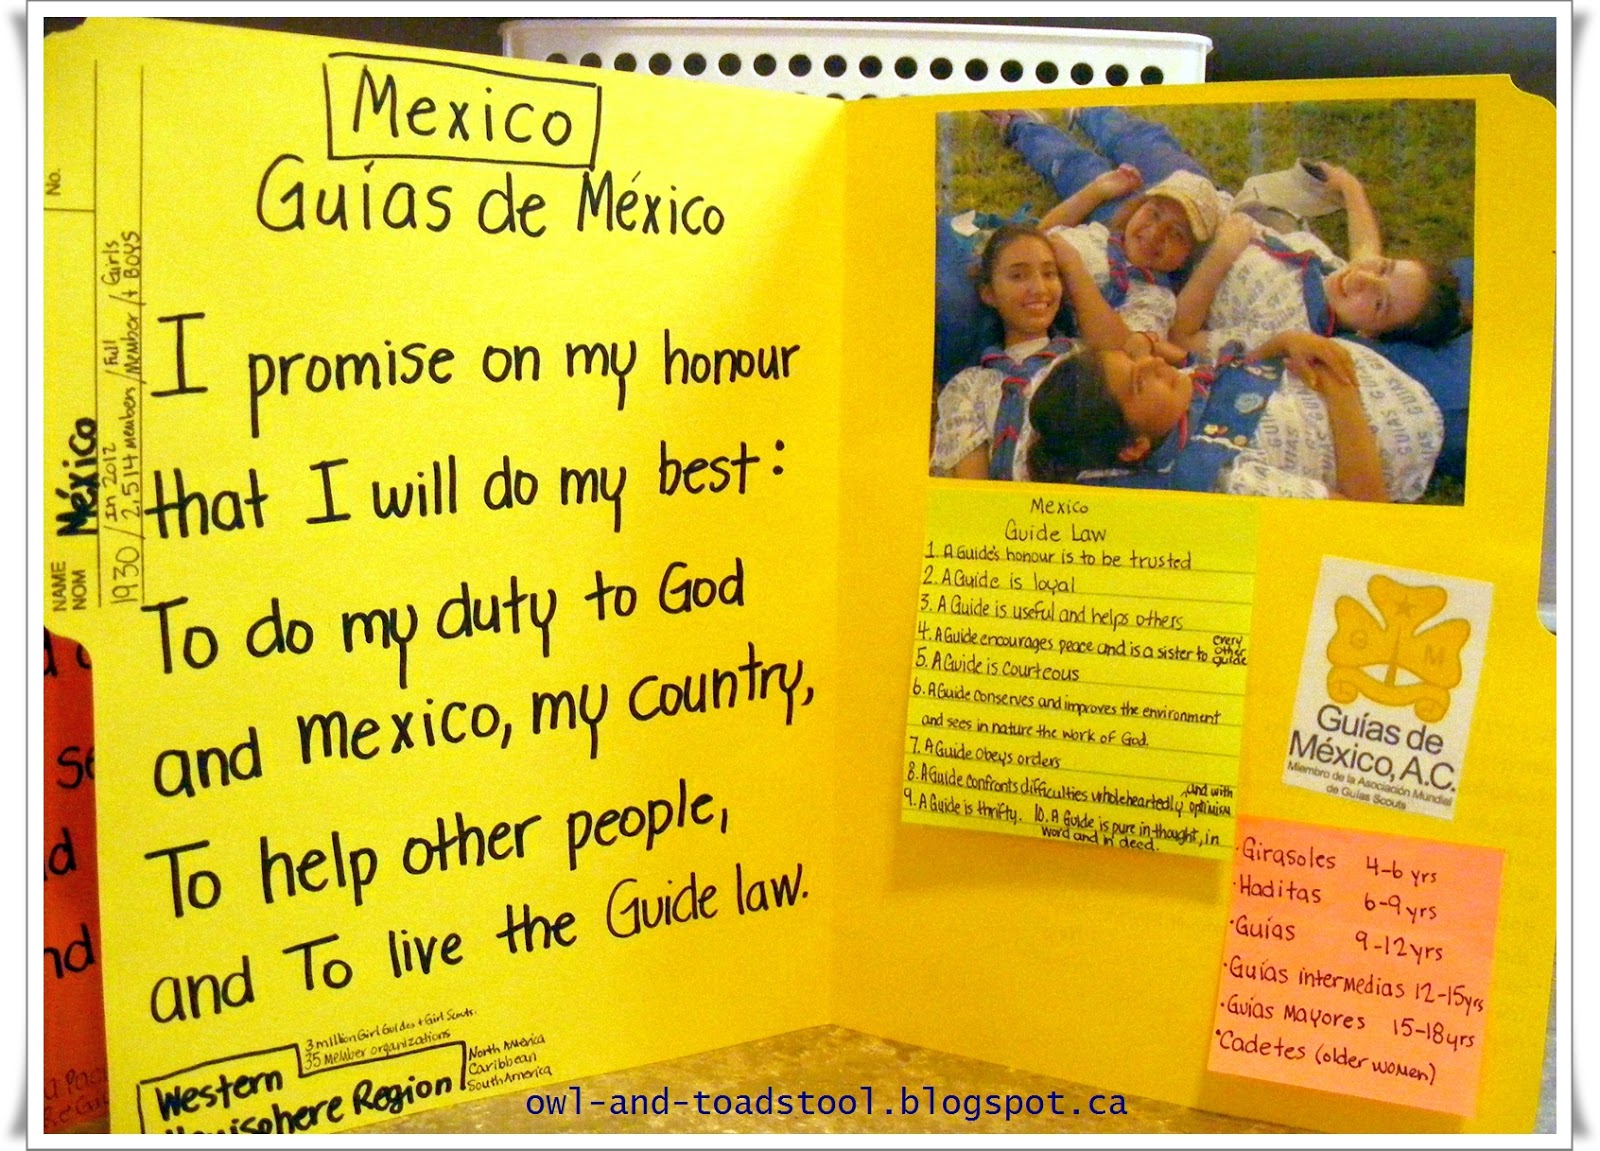 Mexico
Guías de México
I promise on my honour
that I will do my best:
To do my duty to God
and mexico, my country,
To help other people,
and To live the Guide law.
3 million Girl Guides + Girl Scouts.
35 Member organizations
Western
Hemisphere Region
North América
Caribbean
South América
No.
NAME
NOM
México
1930 / In 2012 / Full / Girls
2,514 members / Member / + Boys
Mexico
Guide Law
1. A Guide's honour is to be trusted
2. A Guide is loyal
3. A Guide is useful and helps others
4. A Guide encourages peace and is a sister to every other guide
5. A Guide is courteous
6. A Guide conserves and improves the environment
and sees in nature the work of God.
7. A Guide obeys orders
8. A Guide confronts difficulties wholeheartedly and with optimism
9. A Guide is thrifty. 10. A Guide is pure in thought, in
word and in deed.
G M
Guías de
México, A.C.
Miembro de la Asociación Mundial
de Guías Scouts
· Girasoles 4-6 yrs
· Haditas 6-9 yrs
· Guías 9-12 yrs
· Guías intermedias 12-15 yrs
· Guías Mayores 15-18 yrs
· Cadetes (older women)
GUIAS
owl-and-toadstool.blogspot.ca